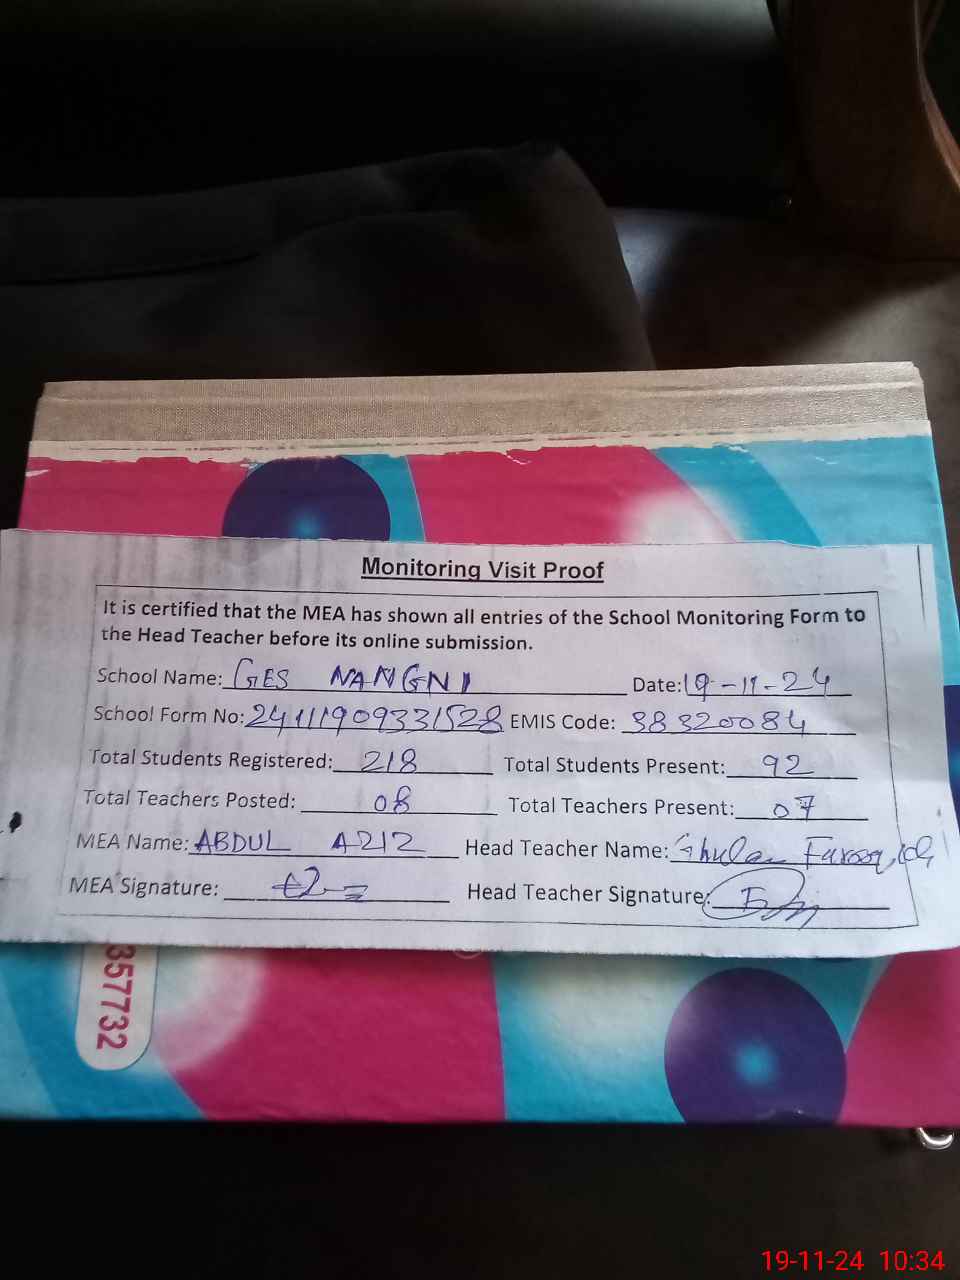 Monitoring Visit Proof
It is certified that the MEA has shown all entries of the School Monitoring Form to
the Head Teacher before its online submission.
School Name: GES NANGNI Date: 19-11-24
School Form No: 241119093331528 EMIS Code: 38320084
Total Students Registered: 218 Total Students Present: 92
Total Teachers Posted: 08 Total Teachers Present: 07
MEA Name: ABDUL AZIZ Head Teacher Name: Ghulam Farooq
MEA Signature: Head Teacher Signature:
357732
19-11-24 10:34